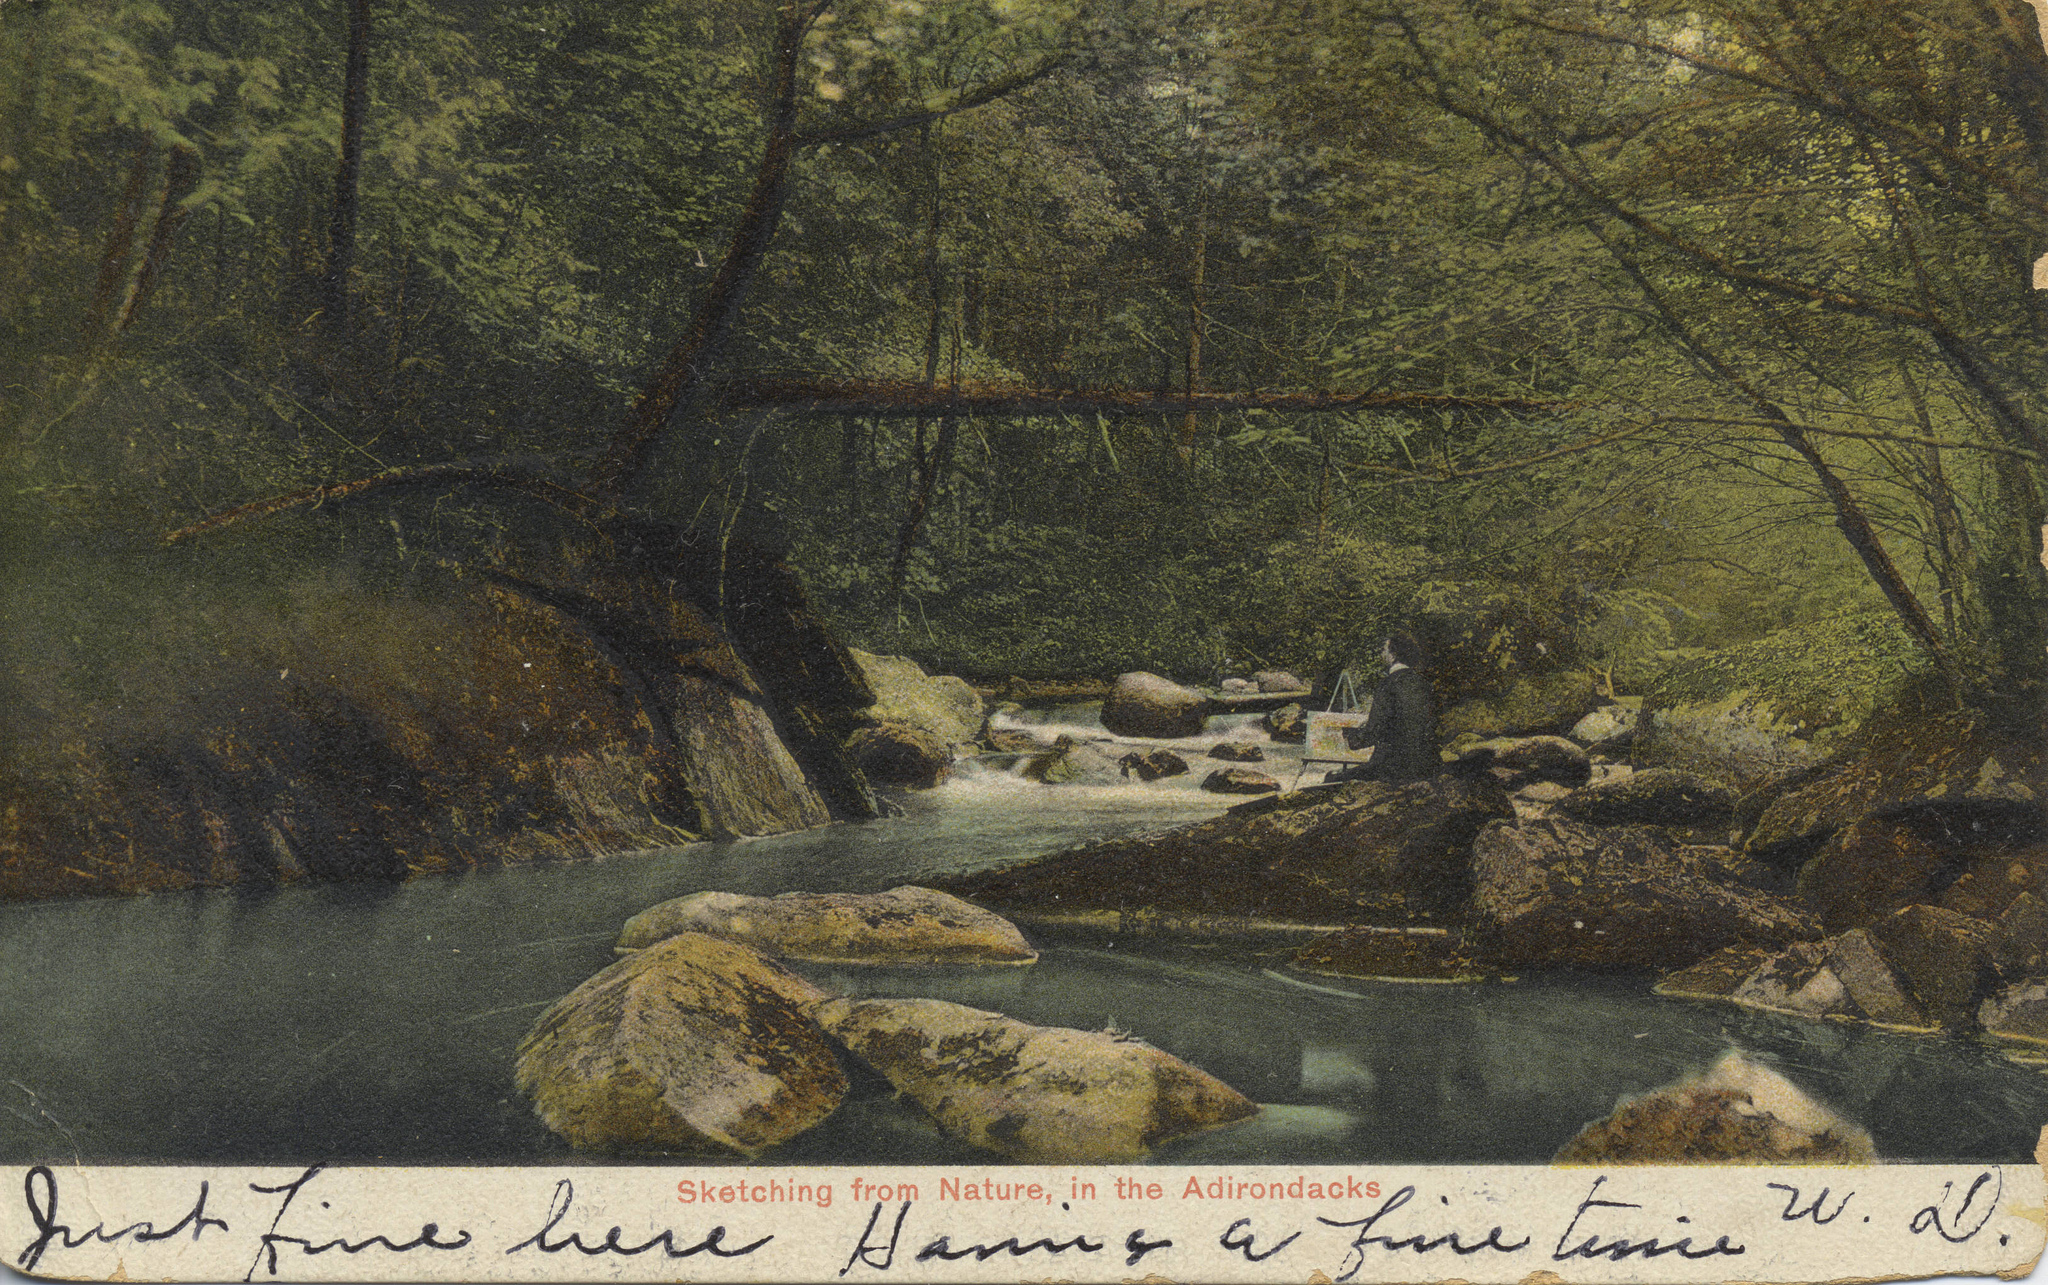 Sketching from Nature, in the Adirondacks
Just fine here Having a fine time W. D.